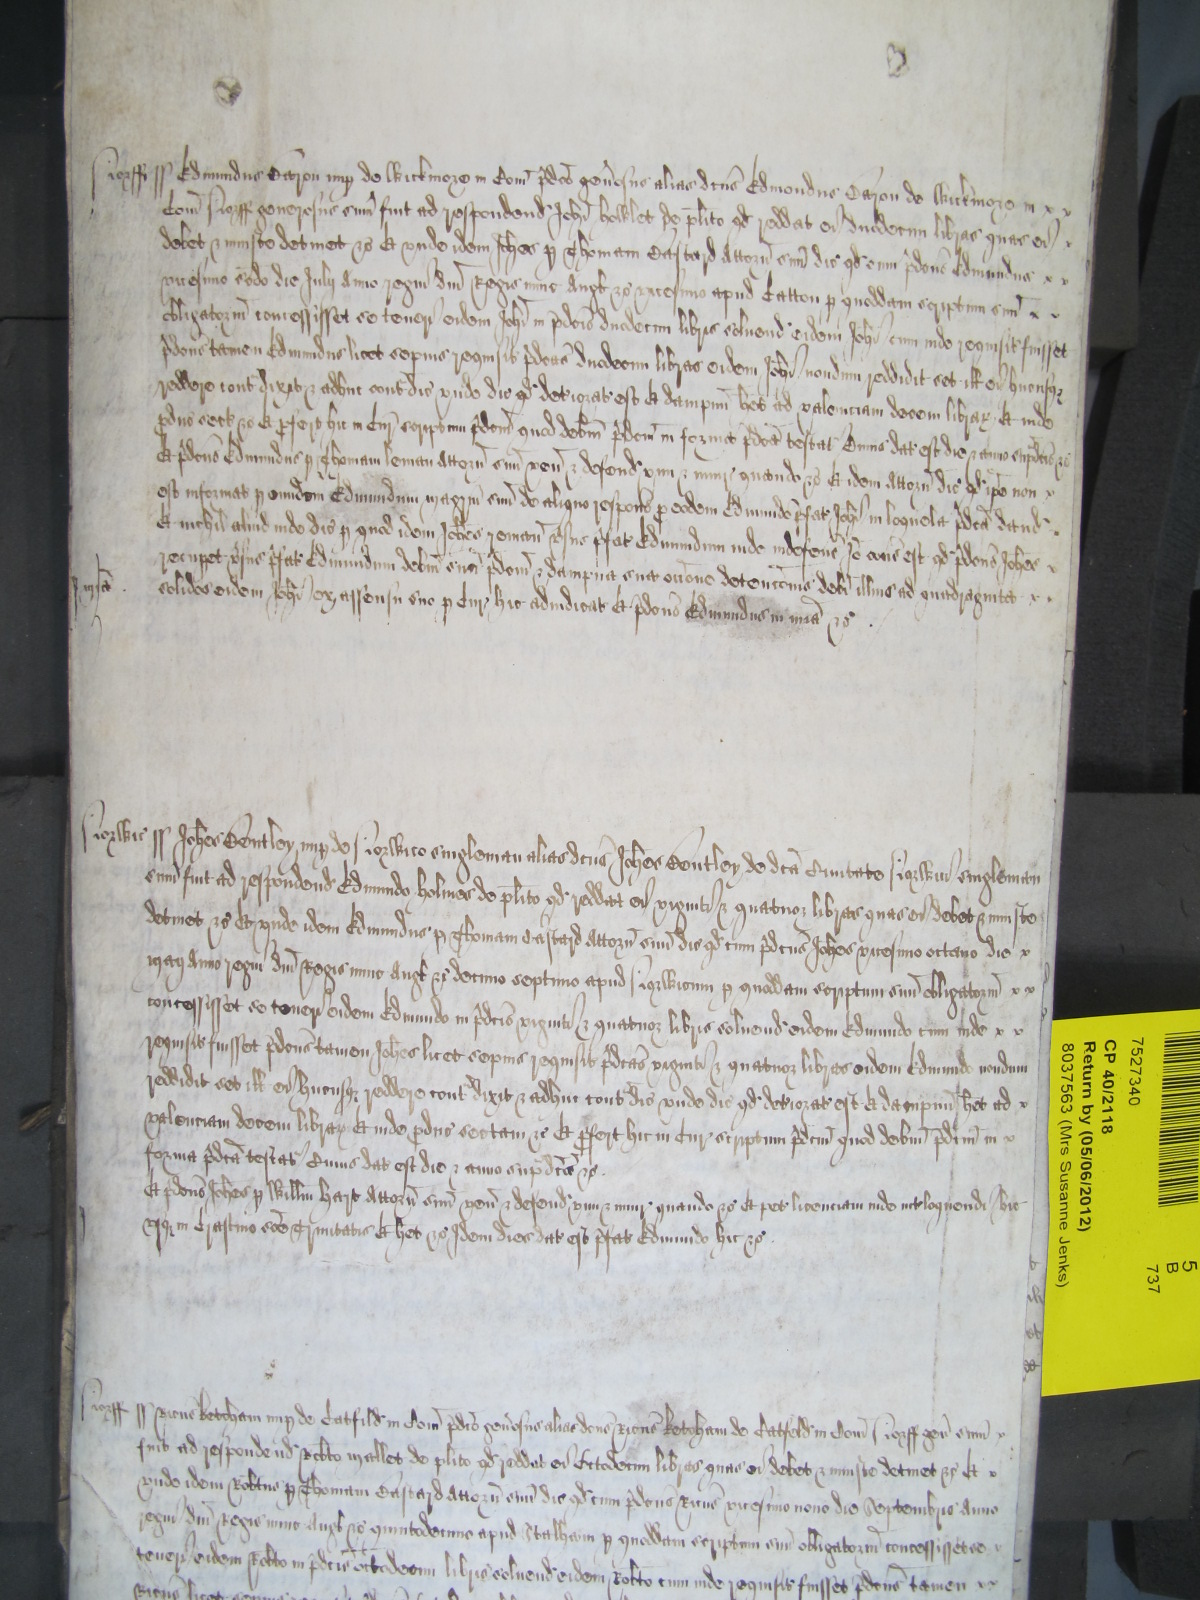 Norff ss Edmundus Caron nup de Wickmore in Com p̄dco gen̄osus alias dcūs Edmondus Caron de Wickmore in
Com Norff generosus sum̄ fuit ad respondend Joh̄i de pl̄ito qd reddat ei duodecim libras quas ei
debet & iniuste detinet &c Et unde idem Joh̄es p Thomam Castard Attorn̄ suū dic qd cum p̄dcūs Edmundus
vicesimo die July Anno regni dn̄i Regis nunc Angl &c vicesimo apud Catton p quoddam scriptum suū
obligatoriū concessisset se teneri eidem Joh̄i in p̄dcis duodecim libris solvend eidem Joh̄i cum inde requisit fuisset
p̄dcūs tamen Edmundus licet sepius requisit p̄dcās duodecim libras eidem Joh̄i nondum reddidit set ill ei hucusq
reddere contdixit & adhuc contdic unde dic qd deteriorat est & dampnū het ad valenciam decem librar Et inde
pduc sect &c Et pfert hic in Cur scriptum p̄dcm̄ quod debitū p̄dcm̄ in forma p̄dcā testat Cuius dat est die & anno sup̄dcis &c
Et p̄dcūs Edmundus p Thomam Leman Attorn̄ suū ven̄ & defend vim & iniur quando &c Et idem Attorn̄ dic qd ip̄e non
est informat p eundem Edmundum magr̄m suū de aliquo respons p eodem Edmundo p̄fat Joh̄i in loquela p̄dcā dand
Et nichil aliud inde dic p quod idem Joh̄es reman̄ v̄sus p̄fat Edmundum inde indefens Iō cons est qd p̄dcūs Joh̄es
recupet v̄sus p̄fat Edmundum debitū suū p̄dcm̄ & dampna sua occōne detencōnis debi illius ad quadraginta
solidos eidem Joh̄i ex assensu suo p Cur hic adiudicat Et p̄dcūs Edmundus in mīa &c
mīa
Norwic ss Joh̄es Bentley nup de Norwico singleman alias dcūs Joh̄es Bentley de dcā Civitate Norwici singleman
sum̄ fuit ad respondend Edmundo Holmes de pl̄ito qd reddat ei viginti & quatuor libras quas ei debet & iniuste
detinet &c Et unde idem Edmundus p Thomam Castard Attorn̄ suū dic qd cum p̄dcūs Joh̄es vicesimo octavo die
Maij Anno regni dn̄i Regis nunc Angl &c decimo septimo apud Norwicum p quoddam scriptum suū obligatoriū
concessisset se teneri eidem Edmundo in p̄dcis viginti & quatuor libris solvend eidem Edmundo cum inde
requisit fuisset p̄dcūs tamen Joh̄es licet sepius requisit p̄dcās viginti & quatuor libras eidem Edmundo nondum
reddidit set ill ei hucusq reddere contdixit & adhuc contdic unde dic qd deteriorat est & dampnū het ad
valenciam decem librar Et inde pduc sectam &c Et pfert hic in Cur scriptum p̄dcm̄ quod debitū p̄dcm̄ in
forma p̄dcā testat Cuius dat est die & anno sup̄dcis &c
Et p̄dcūs Joh̄es p Will̄m Hart Attorn̄ suū ven̄ & defend vim & iniur quando &c Et pet licenciam inde int̄loquendi hic
usq in Crastino scē Trinitatis Et het &c Idem dies dat est p̄fat Edmundo hic &c
Norff ss Ric̄us Ketcham nup de Catfild in Com p̄dco gen̄osus alias dcūs Ric̄us Ketcham de Catfeld in Com Norff gen̄ sum̄
fuit ad respondend Rob̄to Mallet de pl̄ito qd reddat ei Octodecim libras quas ei debet & iniuste detinet &c Et
unde idem Rob̄tus p Thomam Castard Attorn̄ suū dic qd cum p̄dcūs Ric̄us vicesimo nono die Septembris Anno
regni dn̄i Regis nunc Angl &c quintodecimo apud Stalham p quoddam scriptum suū obligatoriū concessisset se
teneri eidem Rob̄to in p̄dcis octodecim libris solvend eidem Rob̄to cum inde requisit fuisset p̄dcūs tamen
Ric̄us licet sepius
7527340
CP 40/2118
Return by (05/06/2012)
8037563 (Mrs Susanne Jenks)
5
B
737